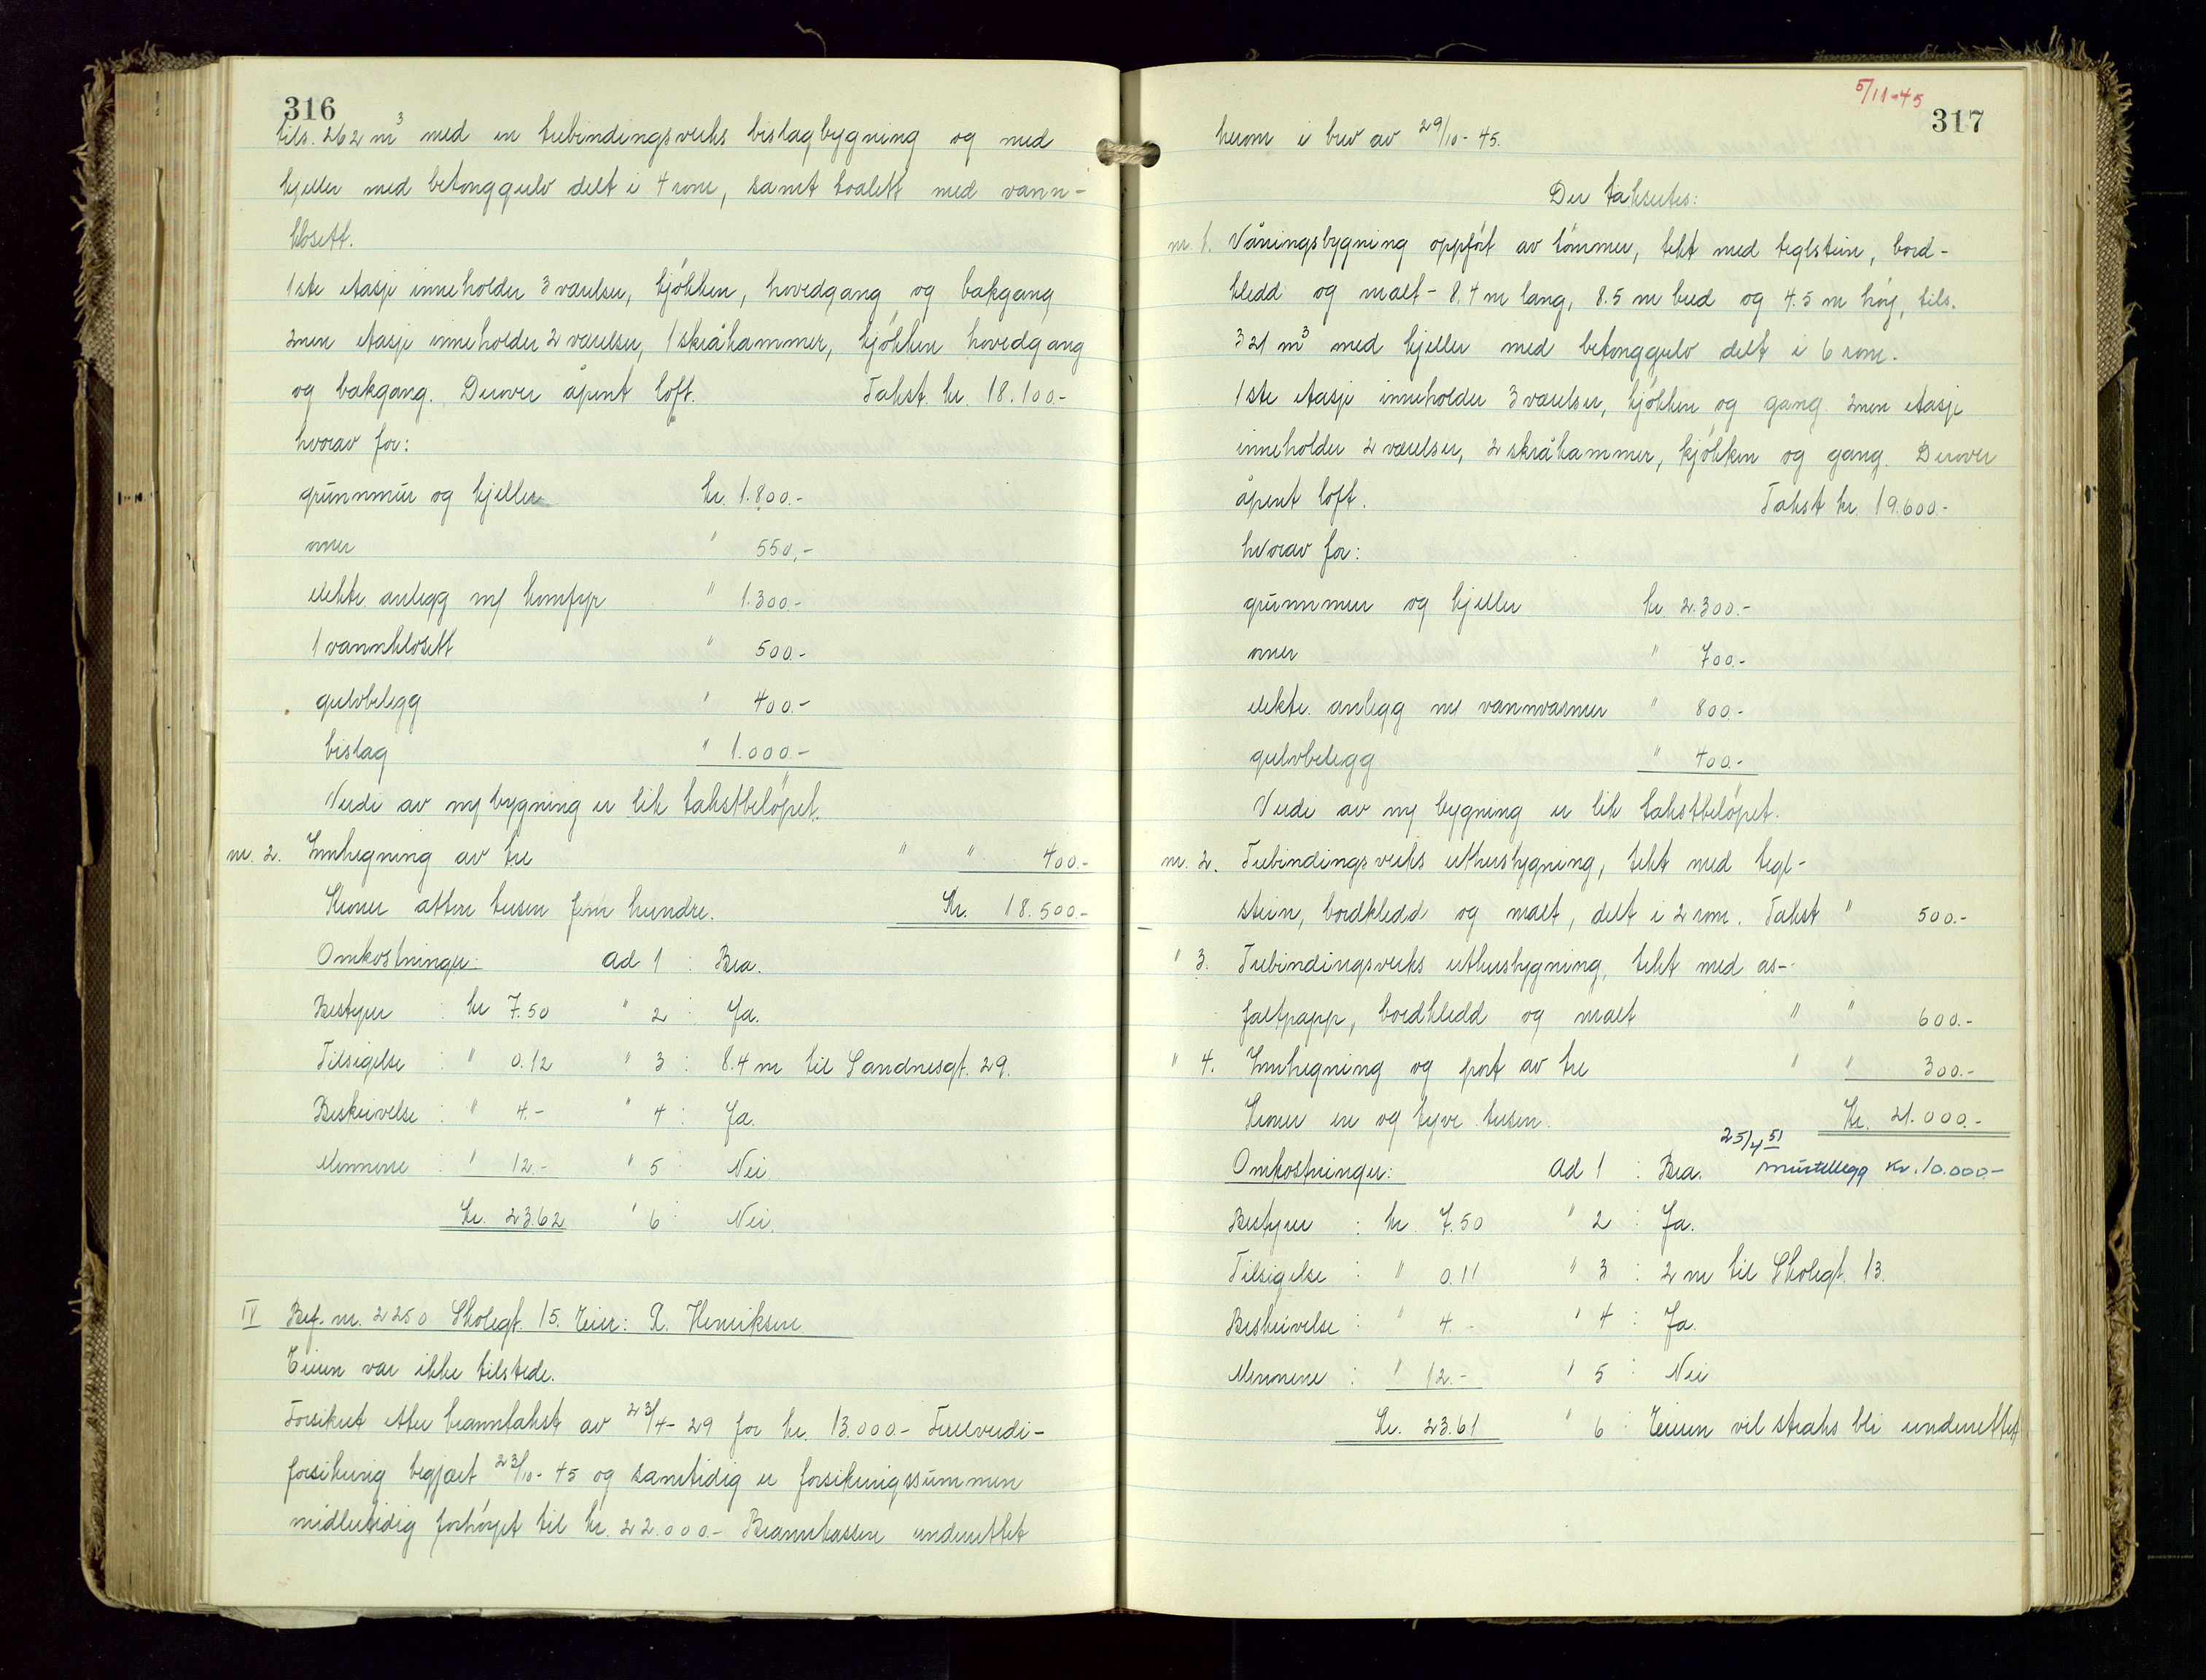 316
tils. 262 m³ med en trebindingsverks bislagbygning og med
kjeller med betonggulv delt i 4 rom, samt toalett med vann-
klosett.
1ste etasje inneholder 3 værelser, kjøkken, hovedgang og bakgang
2nen etasje inneholder 2 værelser, 1 skråkammer, kjøkken hovedgang
og bakgang. Derover åpent loft. Takst. kr. 18.100.-
hvorav for:
grunnmur og kjeller kr. 1.800.-
ovner " 550,-
elektr. anlegg m/ komfyr " 1.300.-
1 vannklosett " 500.-
gulvbelegg " 400.-
bislag " 1.000.-
Verdi av ny bygning er lik takstbeløpet.
nr. 2. Innhegning av tre " " 400.-
Kroner atten tusen fem hundre. Kr. 18.500.-
Omkostninger: ad 1 : Bra.
Bestyrer : kr 7.50 " 2 : Ja.
Tilsigelse : " 0.12 " 3 : 8.4 m til Sandnesgt. 29.
Beskrivelse : " 4.- " 4 : Ja.
Mennene : " 12.- " 5 : Nei
Kr. 23.62 " 6 : Nei.
IV Bef. nr. 2250 Skolegt. 15. Eier: R. Henriksen
Eieren var ikke tilstede.
Forsikret etter branntakst av 23/4-29 for kr. 13.000.- Fullverdi-
forsikring begjært 23/10-45 og samtidig er forsikringssummen
midlertidig forhøyet til kr. 22.000.- Brannkassen underrettet
5/11-45
317
herom i brev av 29/10-45.
Der takseres:
nr. 1. Våningsbygning oppført av tømmer, tekt med teglstein, bord-
kledd og malt - 8.4 m lang, 8.5 m bred og 4.5 m høy, tils.
321 m³ med kjeller med betonggulv delt i 6 rom.
1ste etasje inneholder 3 værelser, kjøkken og gang. 2nen etasje
inneholder 2 værelser, 2 skråkammer, kjøkken og gang. Derover
åpent loft. Takst kr. 19.600.-
hvorav for:
grunnmur og kjeller kr. 2.300.-
ovner " 700.-
elektr. anlegg m/ vannvarmer " 800.-
gulvbelegg " 400.-
Verdi av ny bygning er lik takstbeløpet.
nr. 2. Trebindingsverks uthusbygning, tekt med tegl-
stein, bordkledd og malt, delt i 2 rom. Takst " 500.-
" 3. Trebindingsverks uthusbygning, tekt med as-
faltpapp, bordkledd og malt " " 600.-
" 4. Innhegning og port av tre " " 300.-
Kroner en og tyve tusen. Kr. 21.000.-
25/4 51
Omkostninger: ad 1 : Bra. murtillegg kr. 10.000.-
Bestyrer : kr. 7.50 " 2 : Ja.
Tilsigelse : " 0.11 " 3 : 2 m til Skolegt. 13.
Beskrivelse : " 4.- " 4 : Ja.
Mennene : " 12.- " 5 : Nei
Kr. 23.61 " 6 : Eieren vil straks bli underrettet